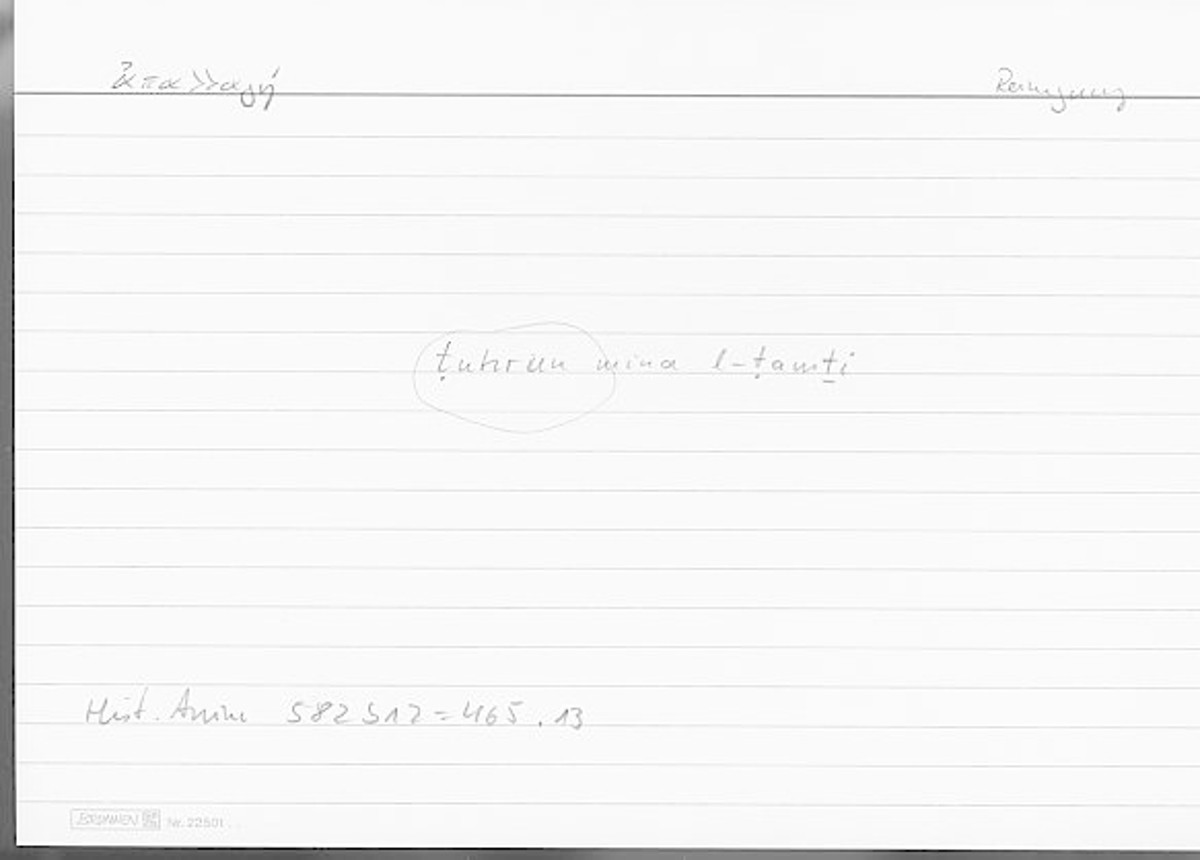 ἀπαλλαγή Reinigung
ṭuhrun mina l-ṭamṯi
Hist. Anim 582 b12 = 465.13
Nr. 22501